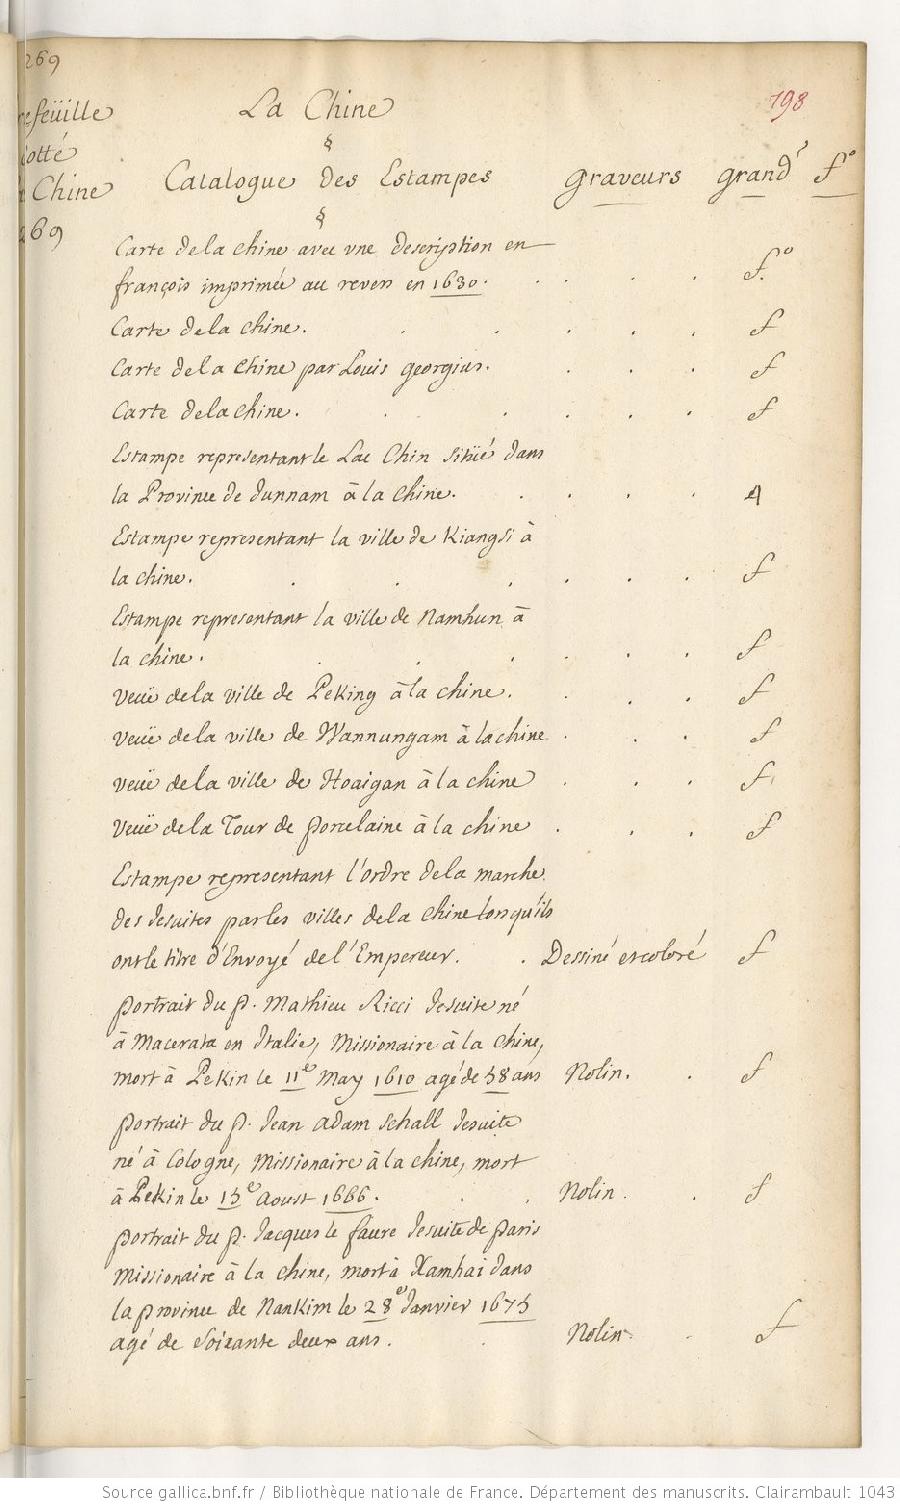 269
La Chine
198
refeüille
cotté
Chine
269
§
Catalogue des Estampes
Graveurs
grand.r
f.o
§
Carte de la chine avec vne description en
françois imprimée au revers en 1630.
f.o
Carte de la chine.
f
Carte de la chine par Louis georgius.
f
Carte de la chine.
f
Estampe representant le Lac Chin sitüé dans
la Province de Junnam à la chine.
4
Estampe representant la ville de Kiangsi à
la chine.
f
Estampe representant la ville de Namhun à
la chine.
f
veüe de la ville de Peking à la chine.
f
veüe de la ville de Wannungam à la chine
f
veüe de la ville de Hoaigan à la chine
f
Veüe de la Tour de porcelaine à la chine
f
Estampe representant l'ordre de la marche
des Jesuites par les villes de la chine lorsqu'ils
ont le titre d'Envoyé de l'Empereur. Dessiné et coloré f
portrait du p. Mathieu Ricci Jesuite né
à Macerata en Italie, Missionaire à la chine,
mort à Pekin le 11e May 1610 agé de 58 ans Nolin. f
portrait du p. Jean adam Schall Jesuite
né à Cologne, Missionaire à la chine, mort
à Pekin le 15e Aoust 1666. Nolin. f
portrait du p. Jacques le faure Jesuite de paris
Missionaire à la chine, mort à Xamhai dans
la province de Nankim le 28e Janvier 1675
agé de soixante deux ans. Nolin. f
Source gallica.bnf.fr / Bibliothèque nationale de France. Département des manuscrits. Clairambault 1043